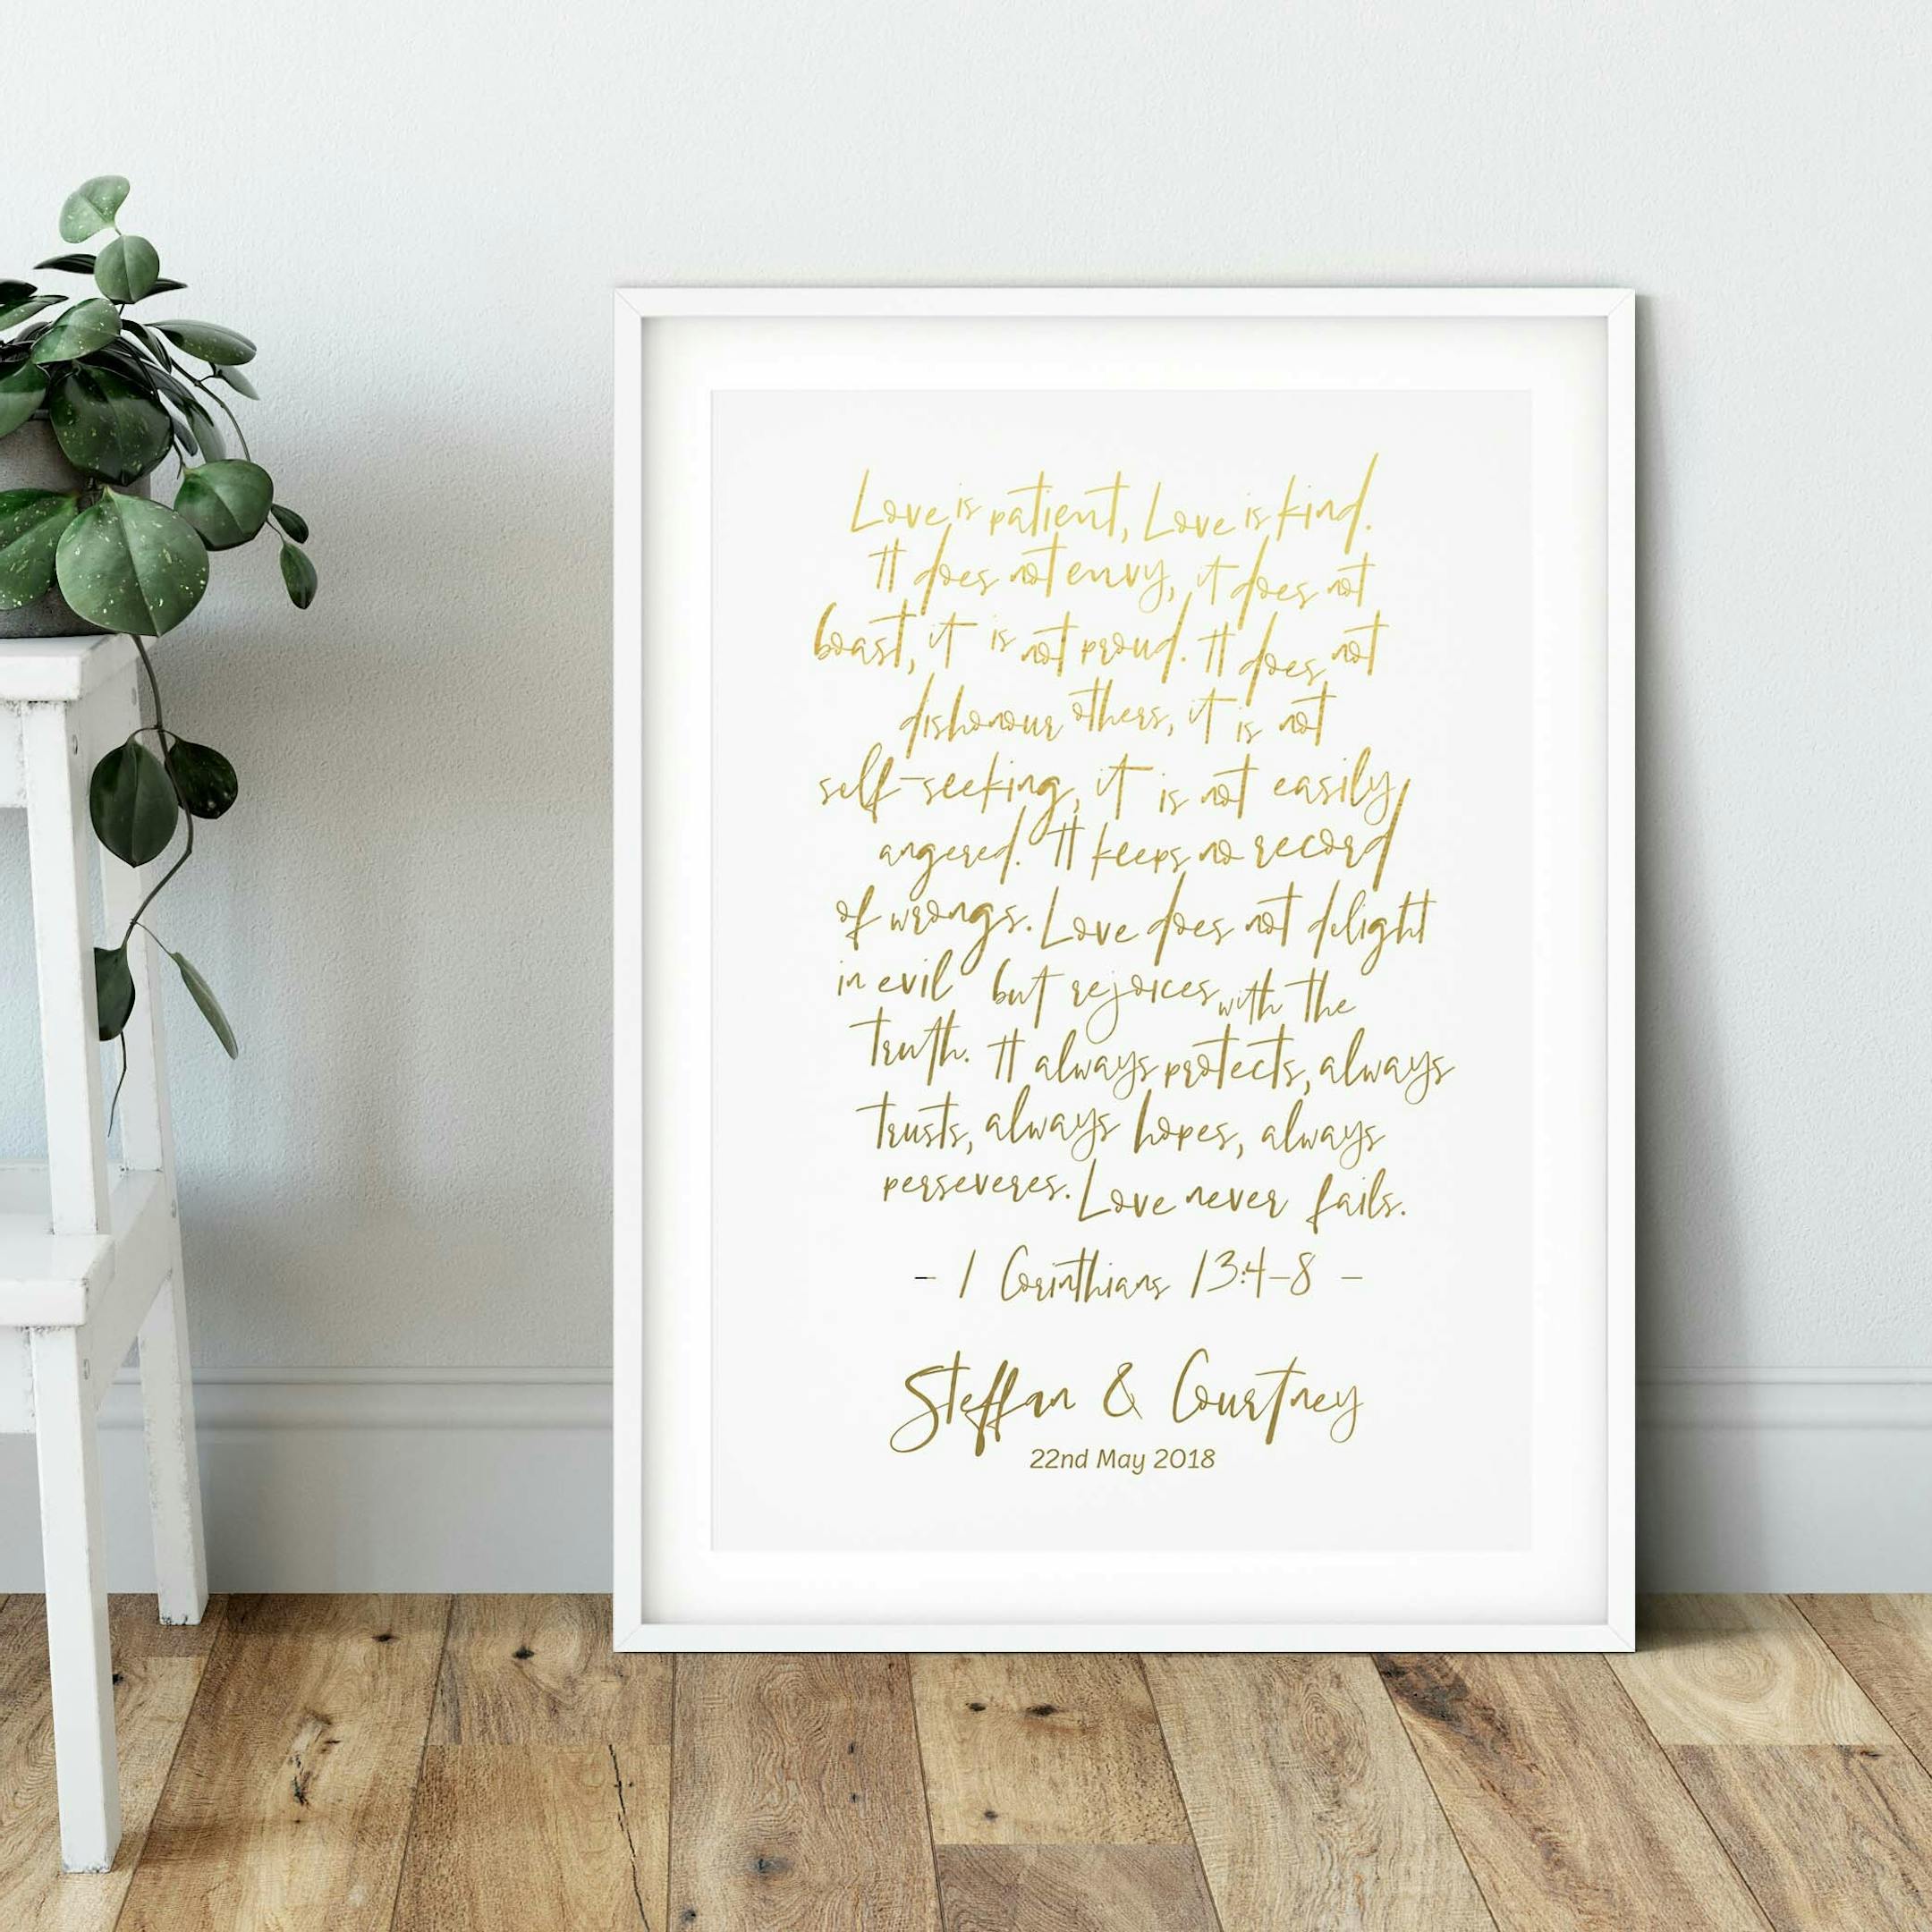 Love is patient, Love is kind.
It does not envy, it does not
boast, it is not proud. It does not
dishonour others, it is not
self-seeking, it is not easily
angered. It keeps no record
of wrongs. Love does not delight
in evil but rejoices with the
truth. It always protects, always
trusts, always hopes, always
perseveres. Love never fails.
- 1 Corinthians 13:4-8 -
Steffan & Courtney
22nd May 2018